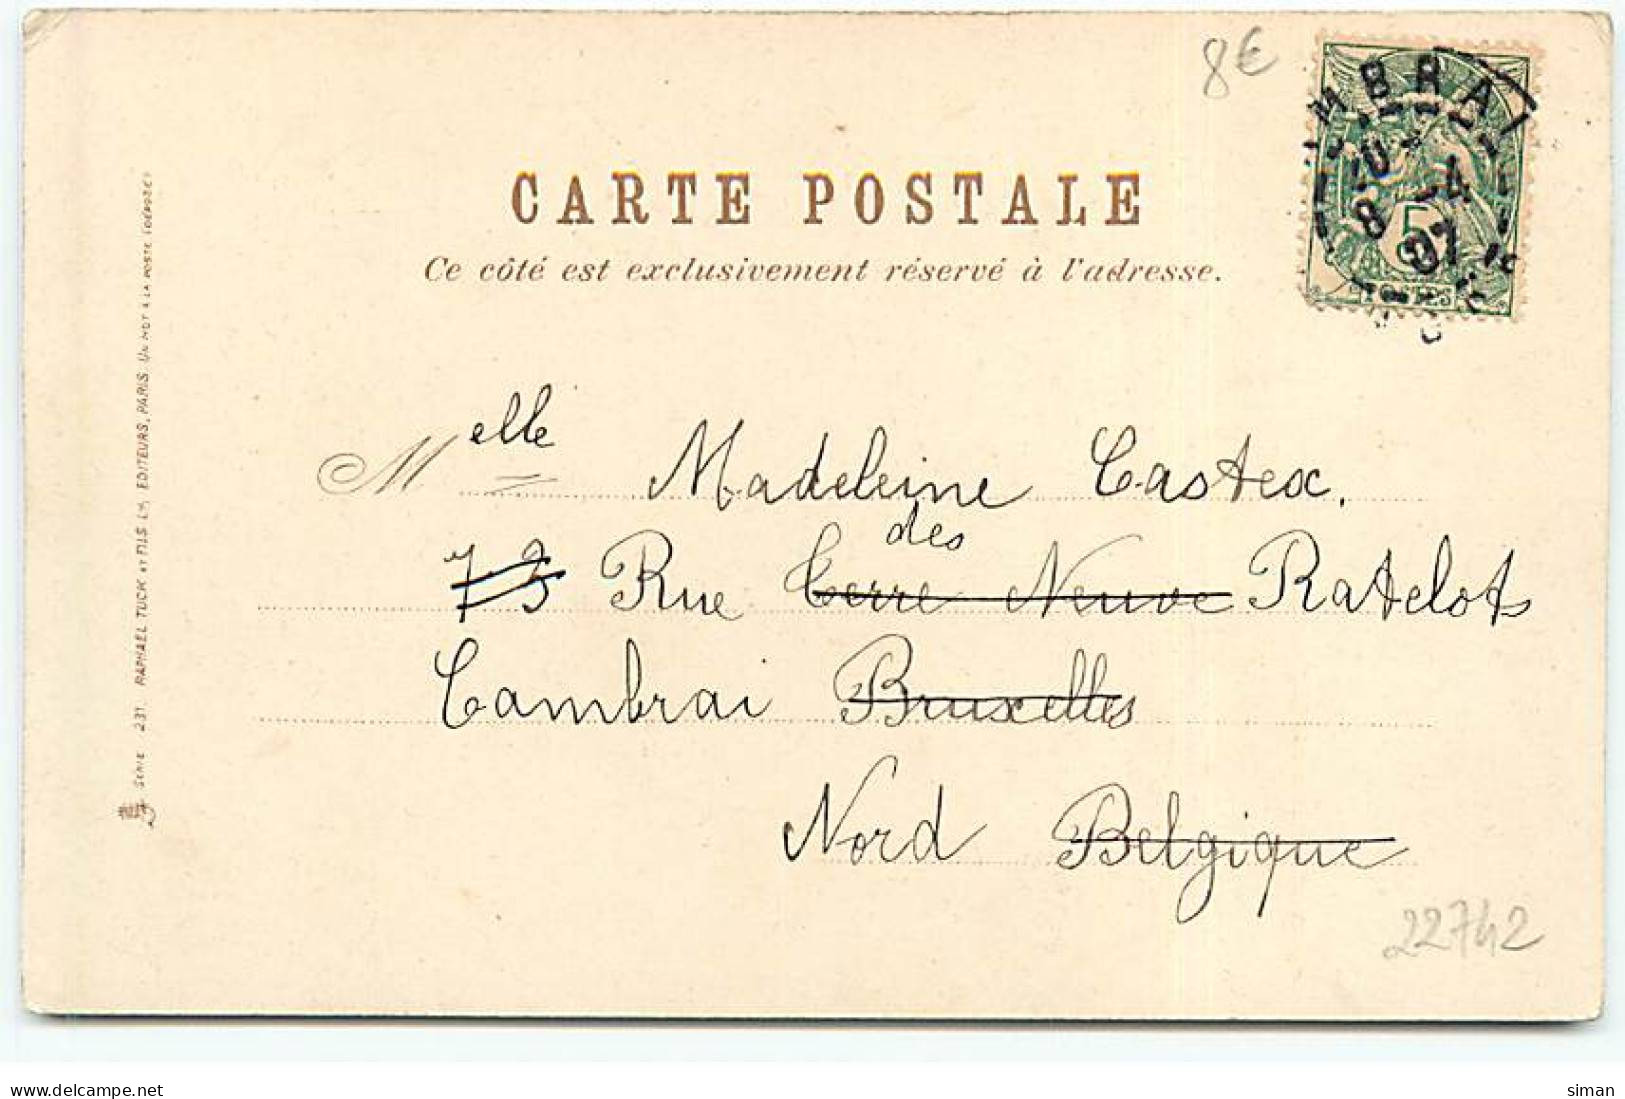 8€
CARTE POSTALE
Ce côté est exclusivement réservé à l'adresse.
MBRAI
8 -4
07
5
POSTES
Melle Madeleine Castex.
des
73 Rue Terre Neuve Ratelots
Cambrai Bruxelles
Nord Belgique
22742
SÉRIE 231 RAPHAEL TUCK ET FILS LTD, EDITEURS, PARIS
delcampe.net
siman